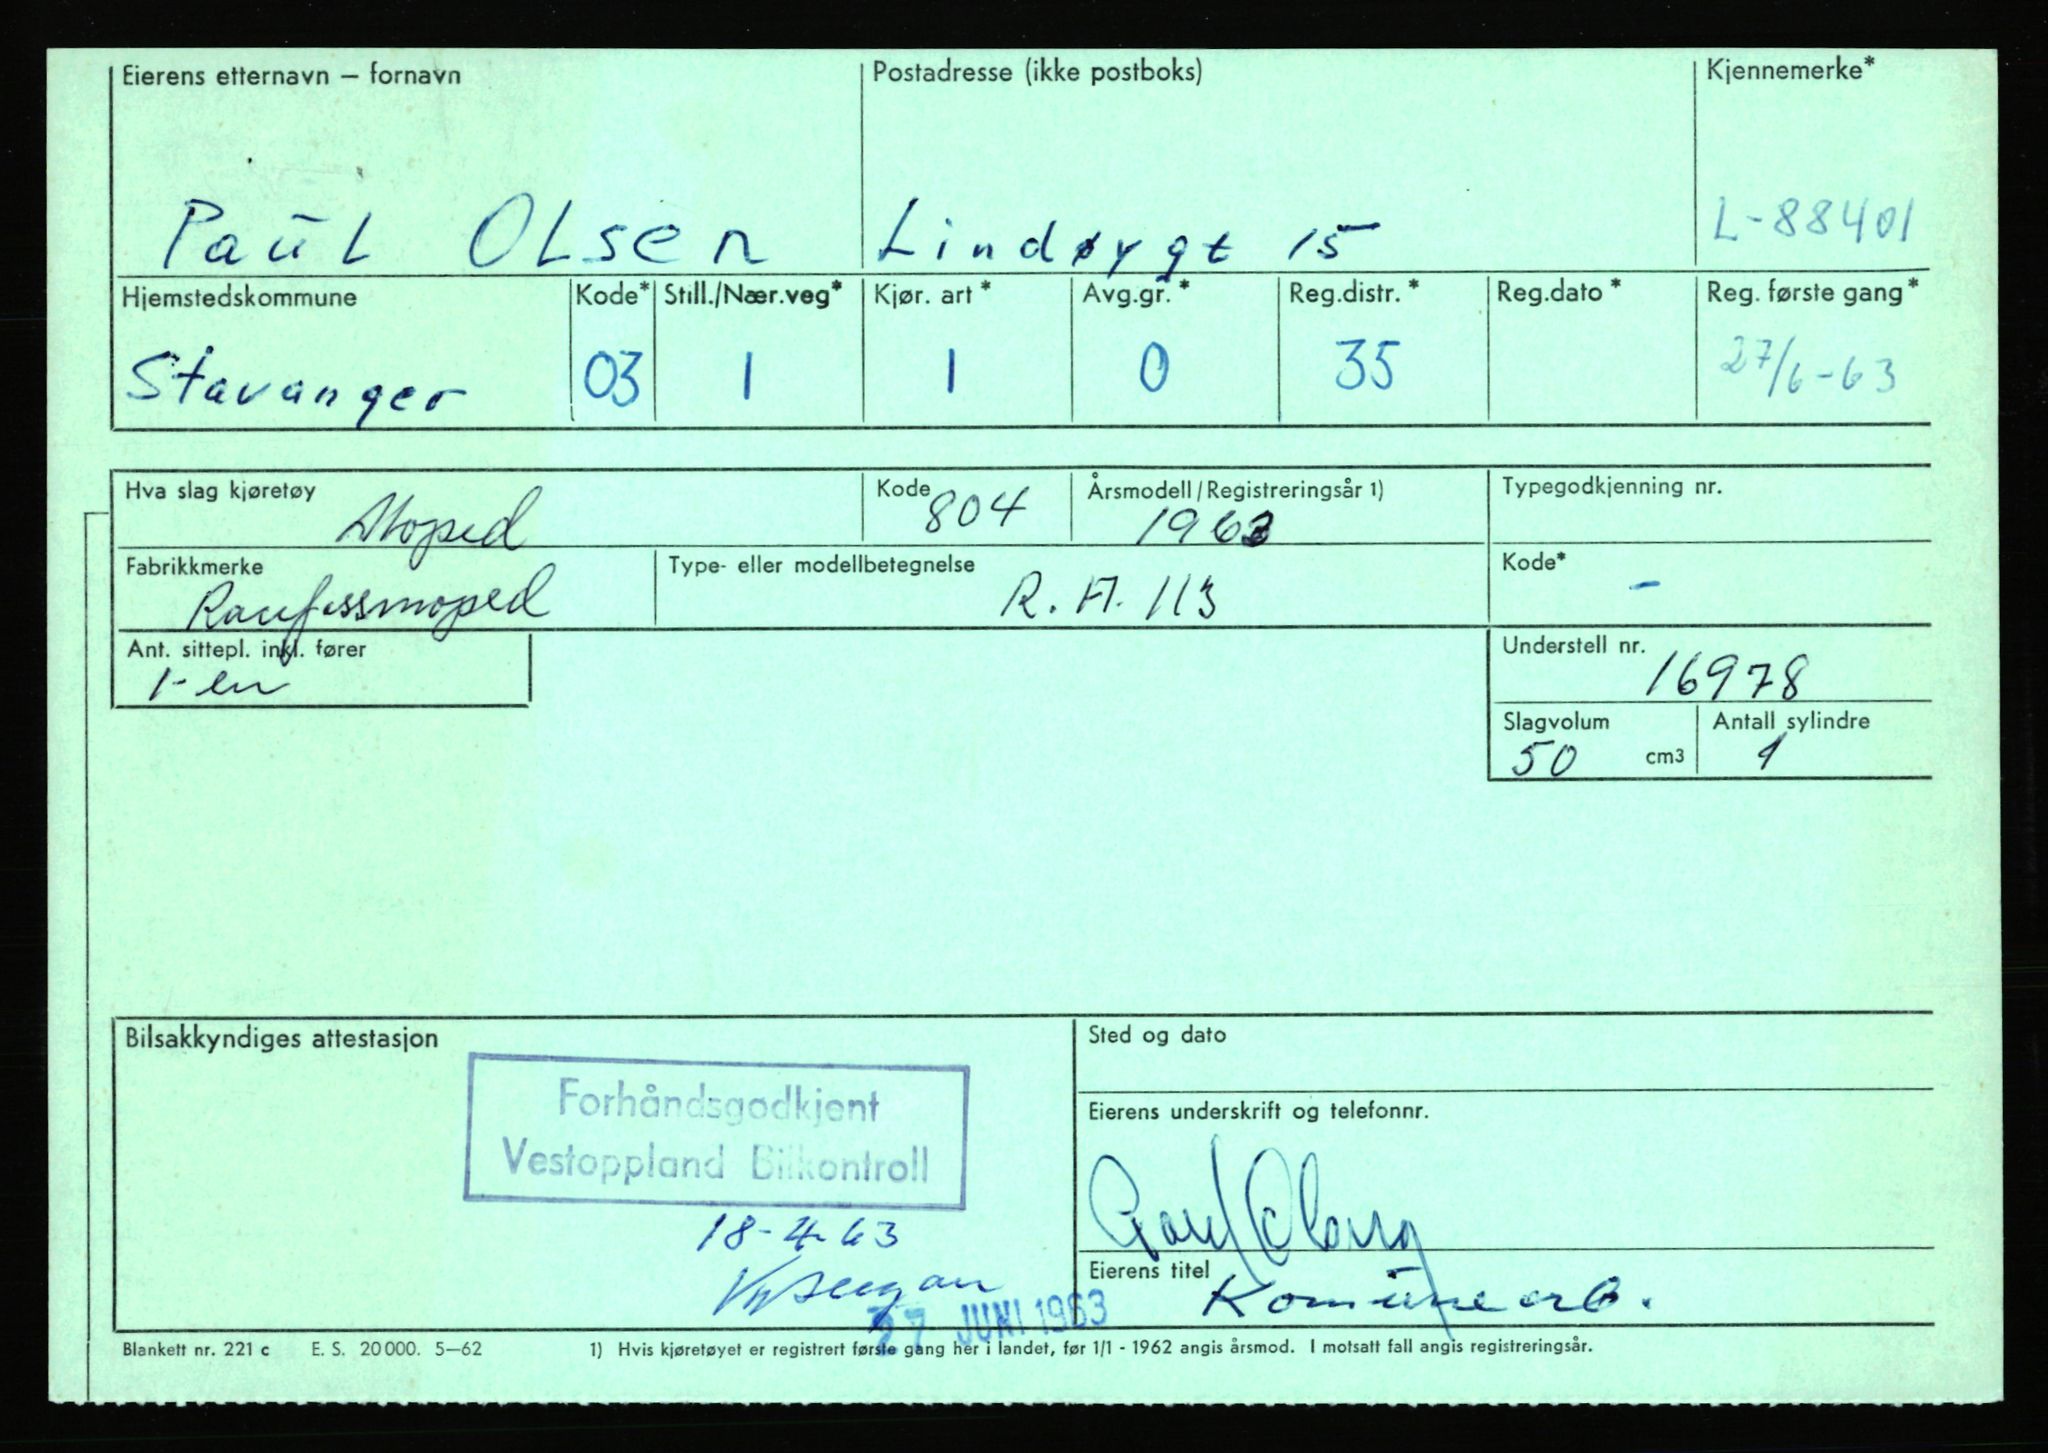 Eierens etternavn — fornavn Postadresse (ikke postboks) Kjennemerke*
Paul Olsen Lindøygt 15 L-88401
Hjemstedskommune Kode* Still./Nær.veg* Kjør. art* Avg.gr.* Reg.distr.* Reg.dato* Reg. første gang*
Stavanger 03 1 1 0 35 27/6-63
Hva slag kjøretøy Kode Årsmodell/Registreringsår 1) Typegodkjenning nr.
Moped 804 1963
Fabrikkmerke Type- eller modellbetegnelse Kode*
Raufossmoped R.A. 113 -
Ant. sittepl. inkl. fører Understell nr.
1-en 16978
Slagvolum Antall sylindre
50 cm3 1
Bilsakkyndiges attestasjon Sted og dato
Forhåndsgodkjent
Vestoppland Bilkontroll
Eierens underskrift og telefonnr.
18-4-63
Paul Olsen
Eierens titel
Komunearb.
27 JUNI 1963
Blankett nr. 221 c E. S. 20 000. 5—62 1) Hvis kjøretøyet er registrert første gang her i landet, før 1/1 - 1962 angis årsmod. I motsatt fall angis registreringsår.